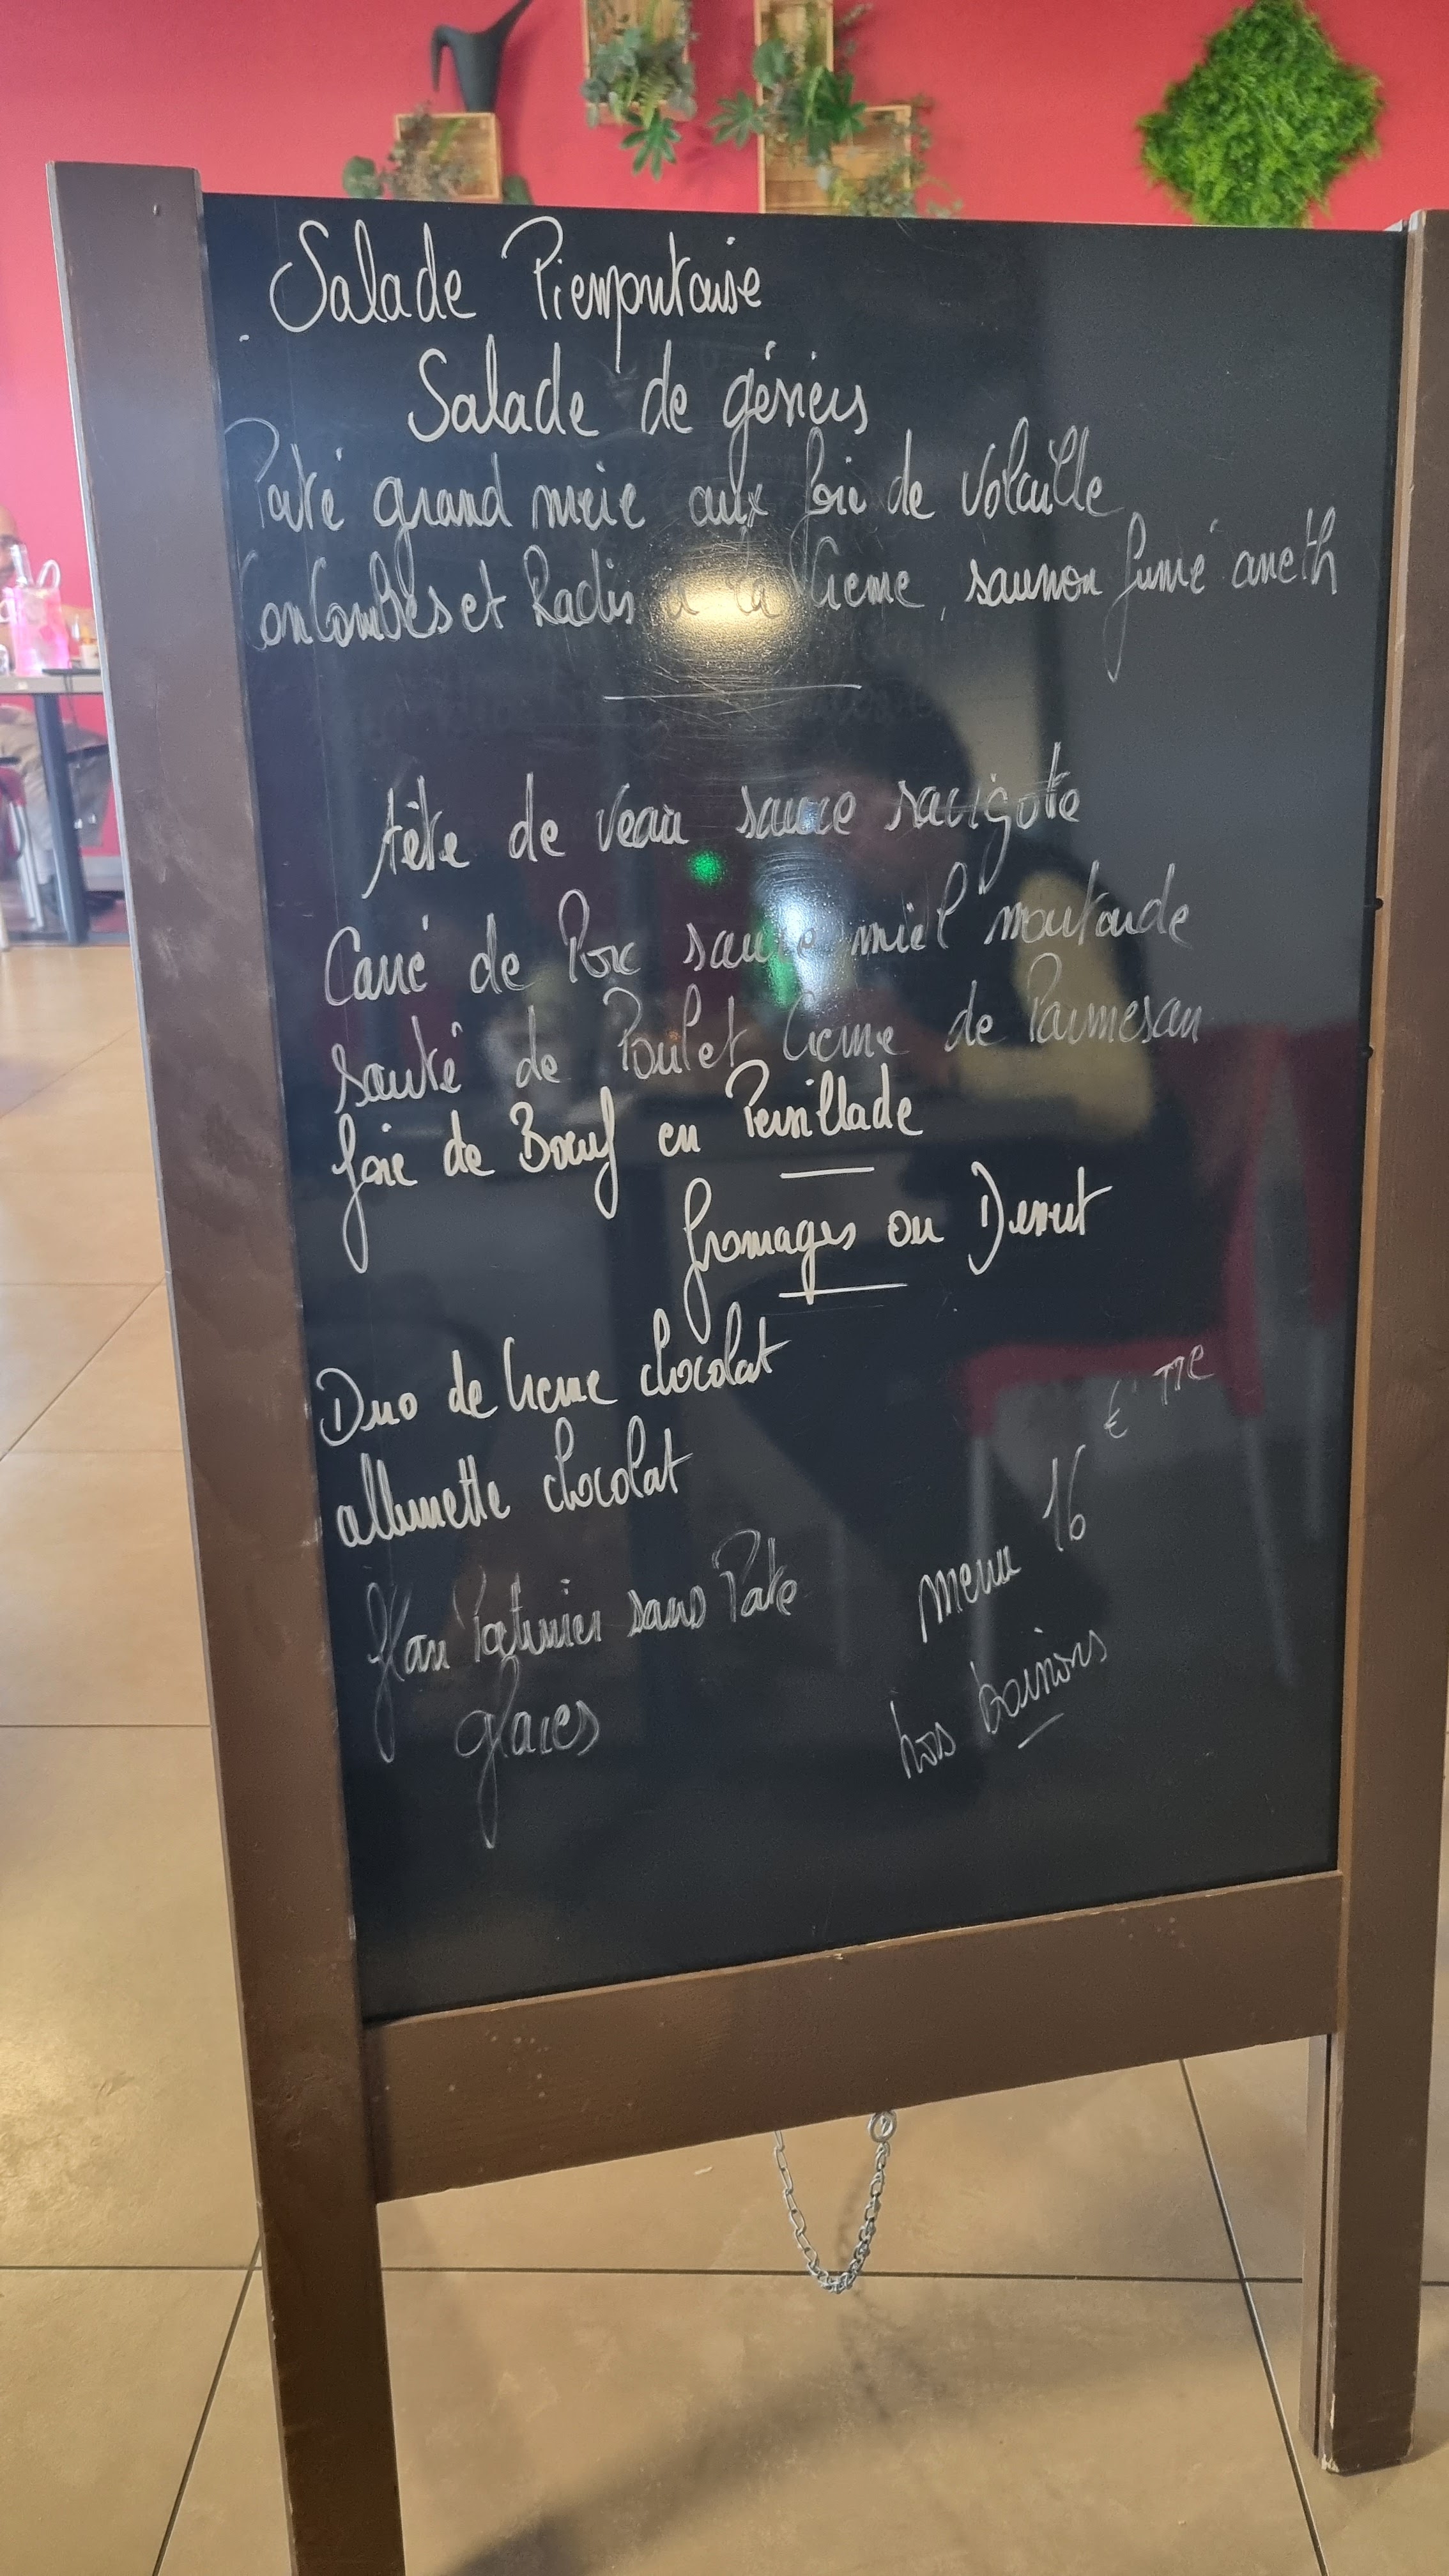 Salade Piemontaise
Salade de gésiers
Paté grand mère aux foie de Volaille
Concombres et Radis à la Crème, saumon fumé aneth
tête de veau sauce ravigote
Carré de Porc sauce miel moutarde
sauté de Poulet Crème de Parmesan
foie de Boeuf en Persillade
fromages ou Dessert
Duo de Crème chocolat
allumette chocolat
flan Patissier sans Pate
glaces
menu 16 €
hors boissons